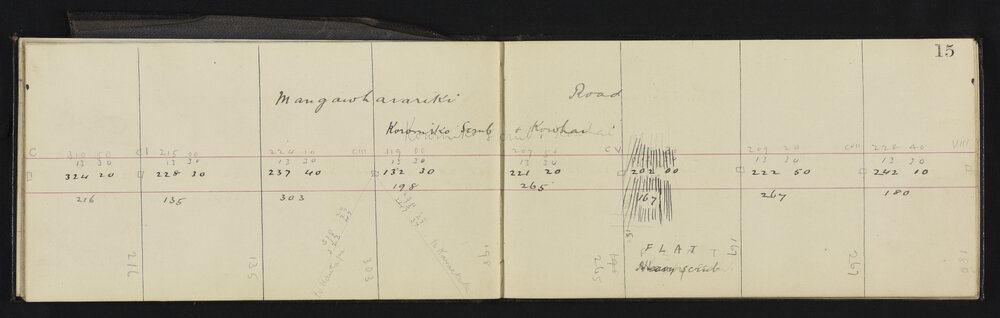 15
Mangawharariki Road
Koromiko Scrub & Kowhai
C CI CIII CV CVII VIII
310 50 215 00 224 10 119 00 207 50 209 20 228 40
13 30 13 30 13 30 13 30 13 30 13 30 13 30
324 20 228 30 237 40 132 30 221 20 202 00 222 50 242 10
216 135 303 198 265 167 267 180
FLAT
Heavy scrub
216 135 303 198 265 167 267 180